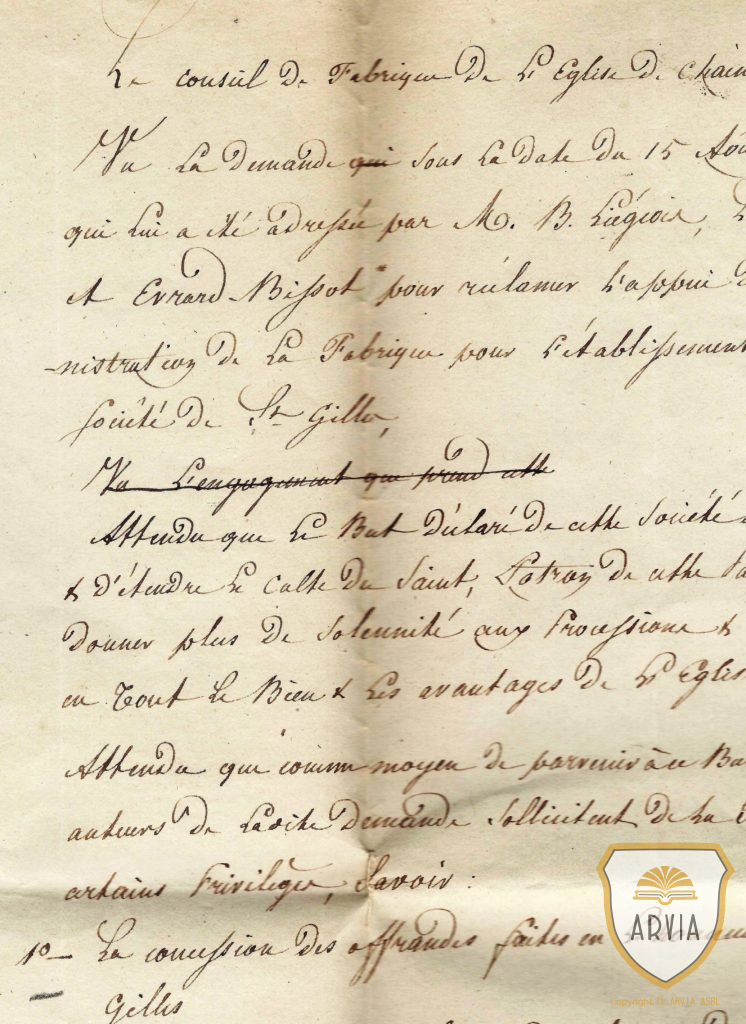 Le conseil De Fabrique De L'Eglise De Chain
Vu La Demande qui sous La date du 15 Aou
qui Lui a été adressée par M. B. Liégeois, L
et Evrard-Bissot pour réclamer L'appui
-nistration De La Fabrique pour L'établissement
société De St Gilles,
Vu L'engagement que prend cette
Attendu que Le But Déclaré de cette société
& D'étendre Le Culte Du Saint, Patron De cette
Donner plus De solennité aux Processions &
en Tout Le Bien & Les avantages De L'Eglis
Attendu que comme moyen de parvenir à ce Bu
auteurs De Ladite Demande sollicitent De La
certains Privilèges, Savoir :
1º- La concession Des offrandes faites en
Gilles
ARVIA
Copyright © ARVIA ASBL